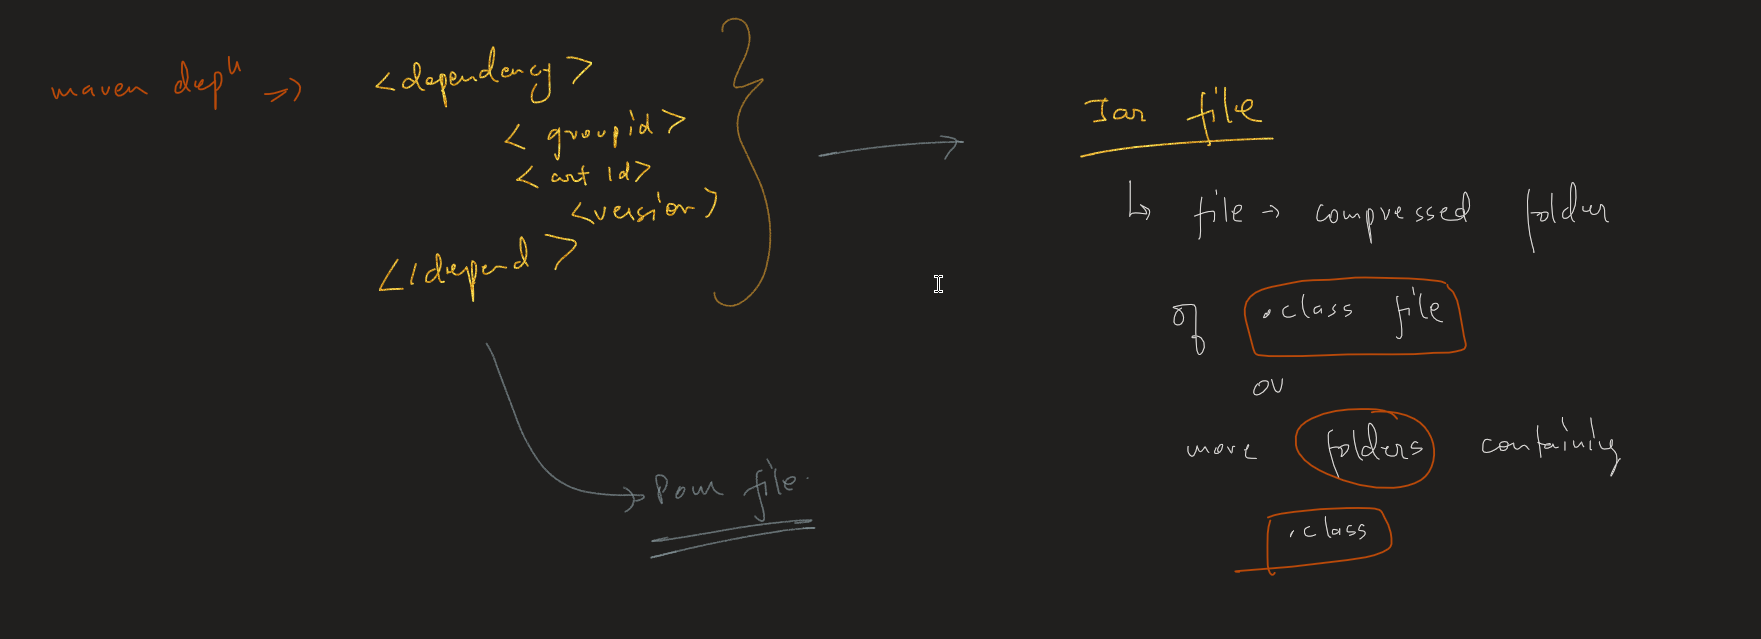 maven depⁿ =>
<dependency>
<groupid>
<art id>
<version>
</depend>
Pom file.
Jar file
↳ file → compressed folder
of .class file
or
more folders containing
.class